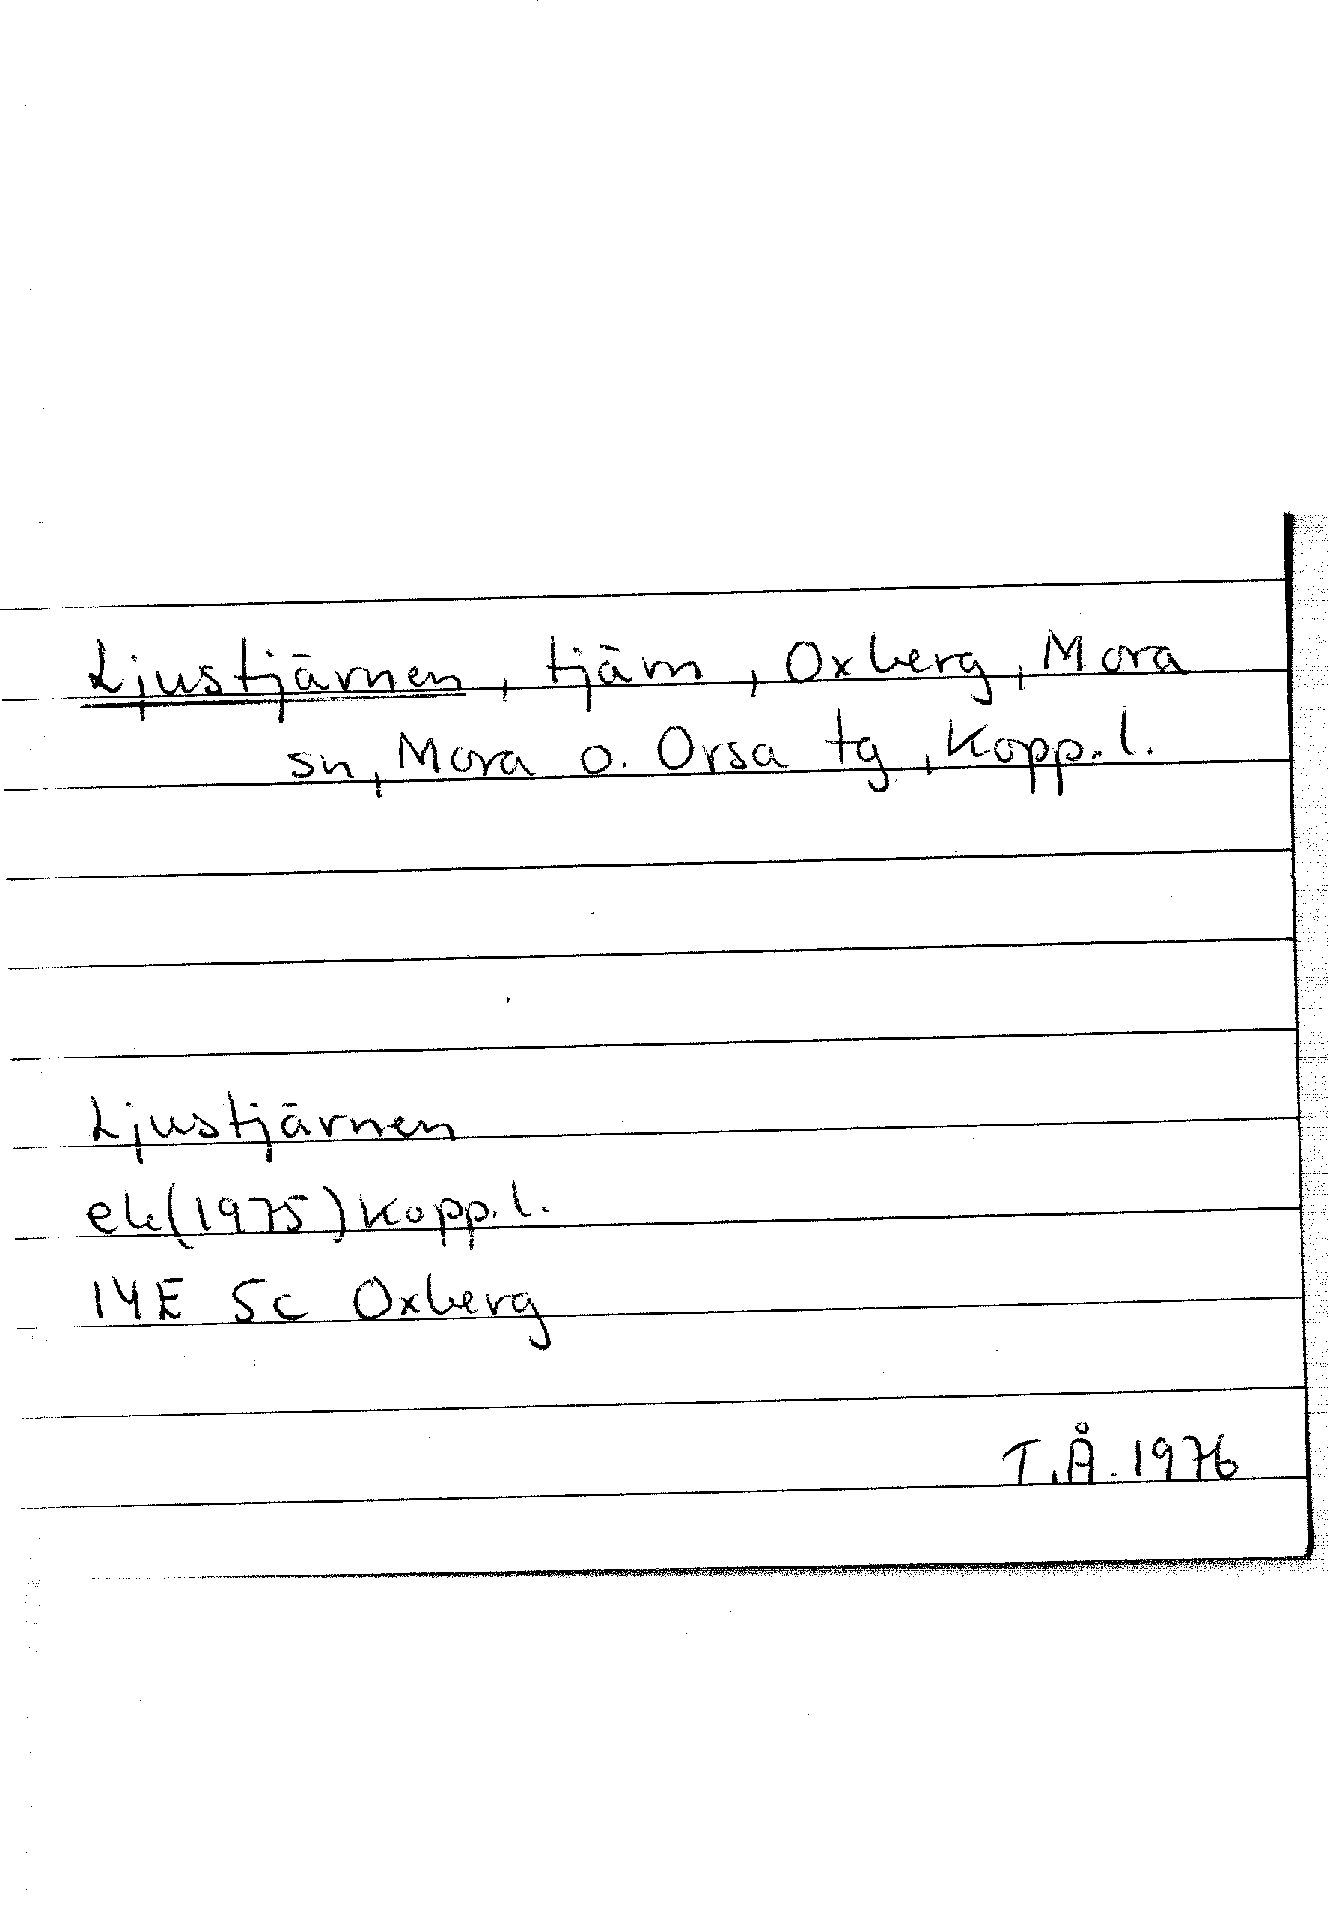 Ljustjärnen, tjärn, Oxberg, Mora
sn, Mora o. Orsa tg, Kopp. l.
Ljustjärnen
ek (1975) Kopp. l.
14E 5c Oxberg
T.Å. 1976